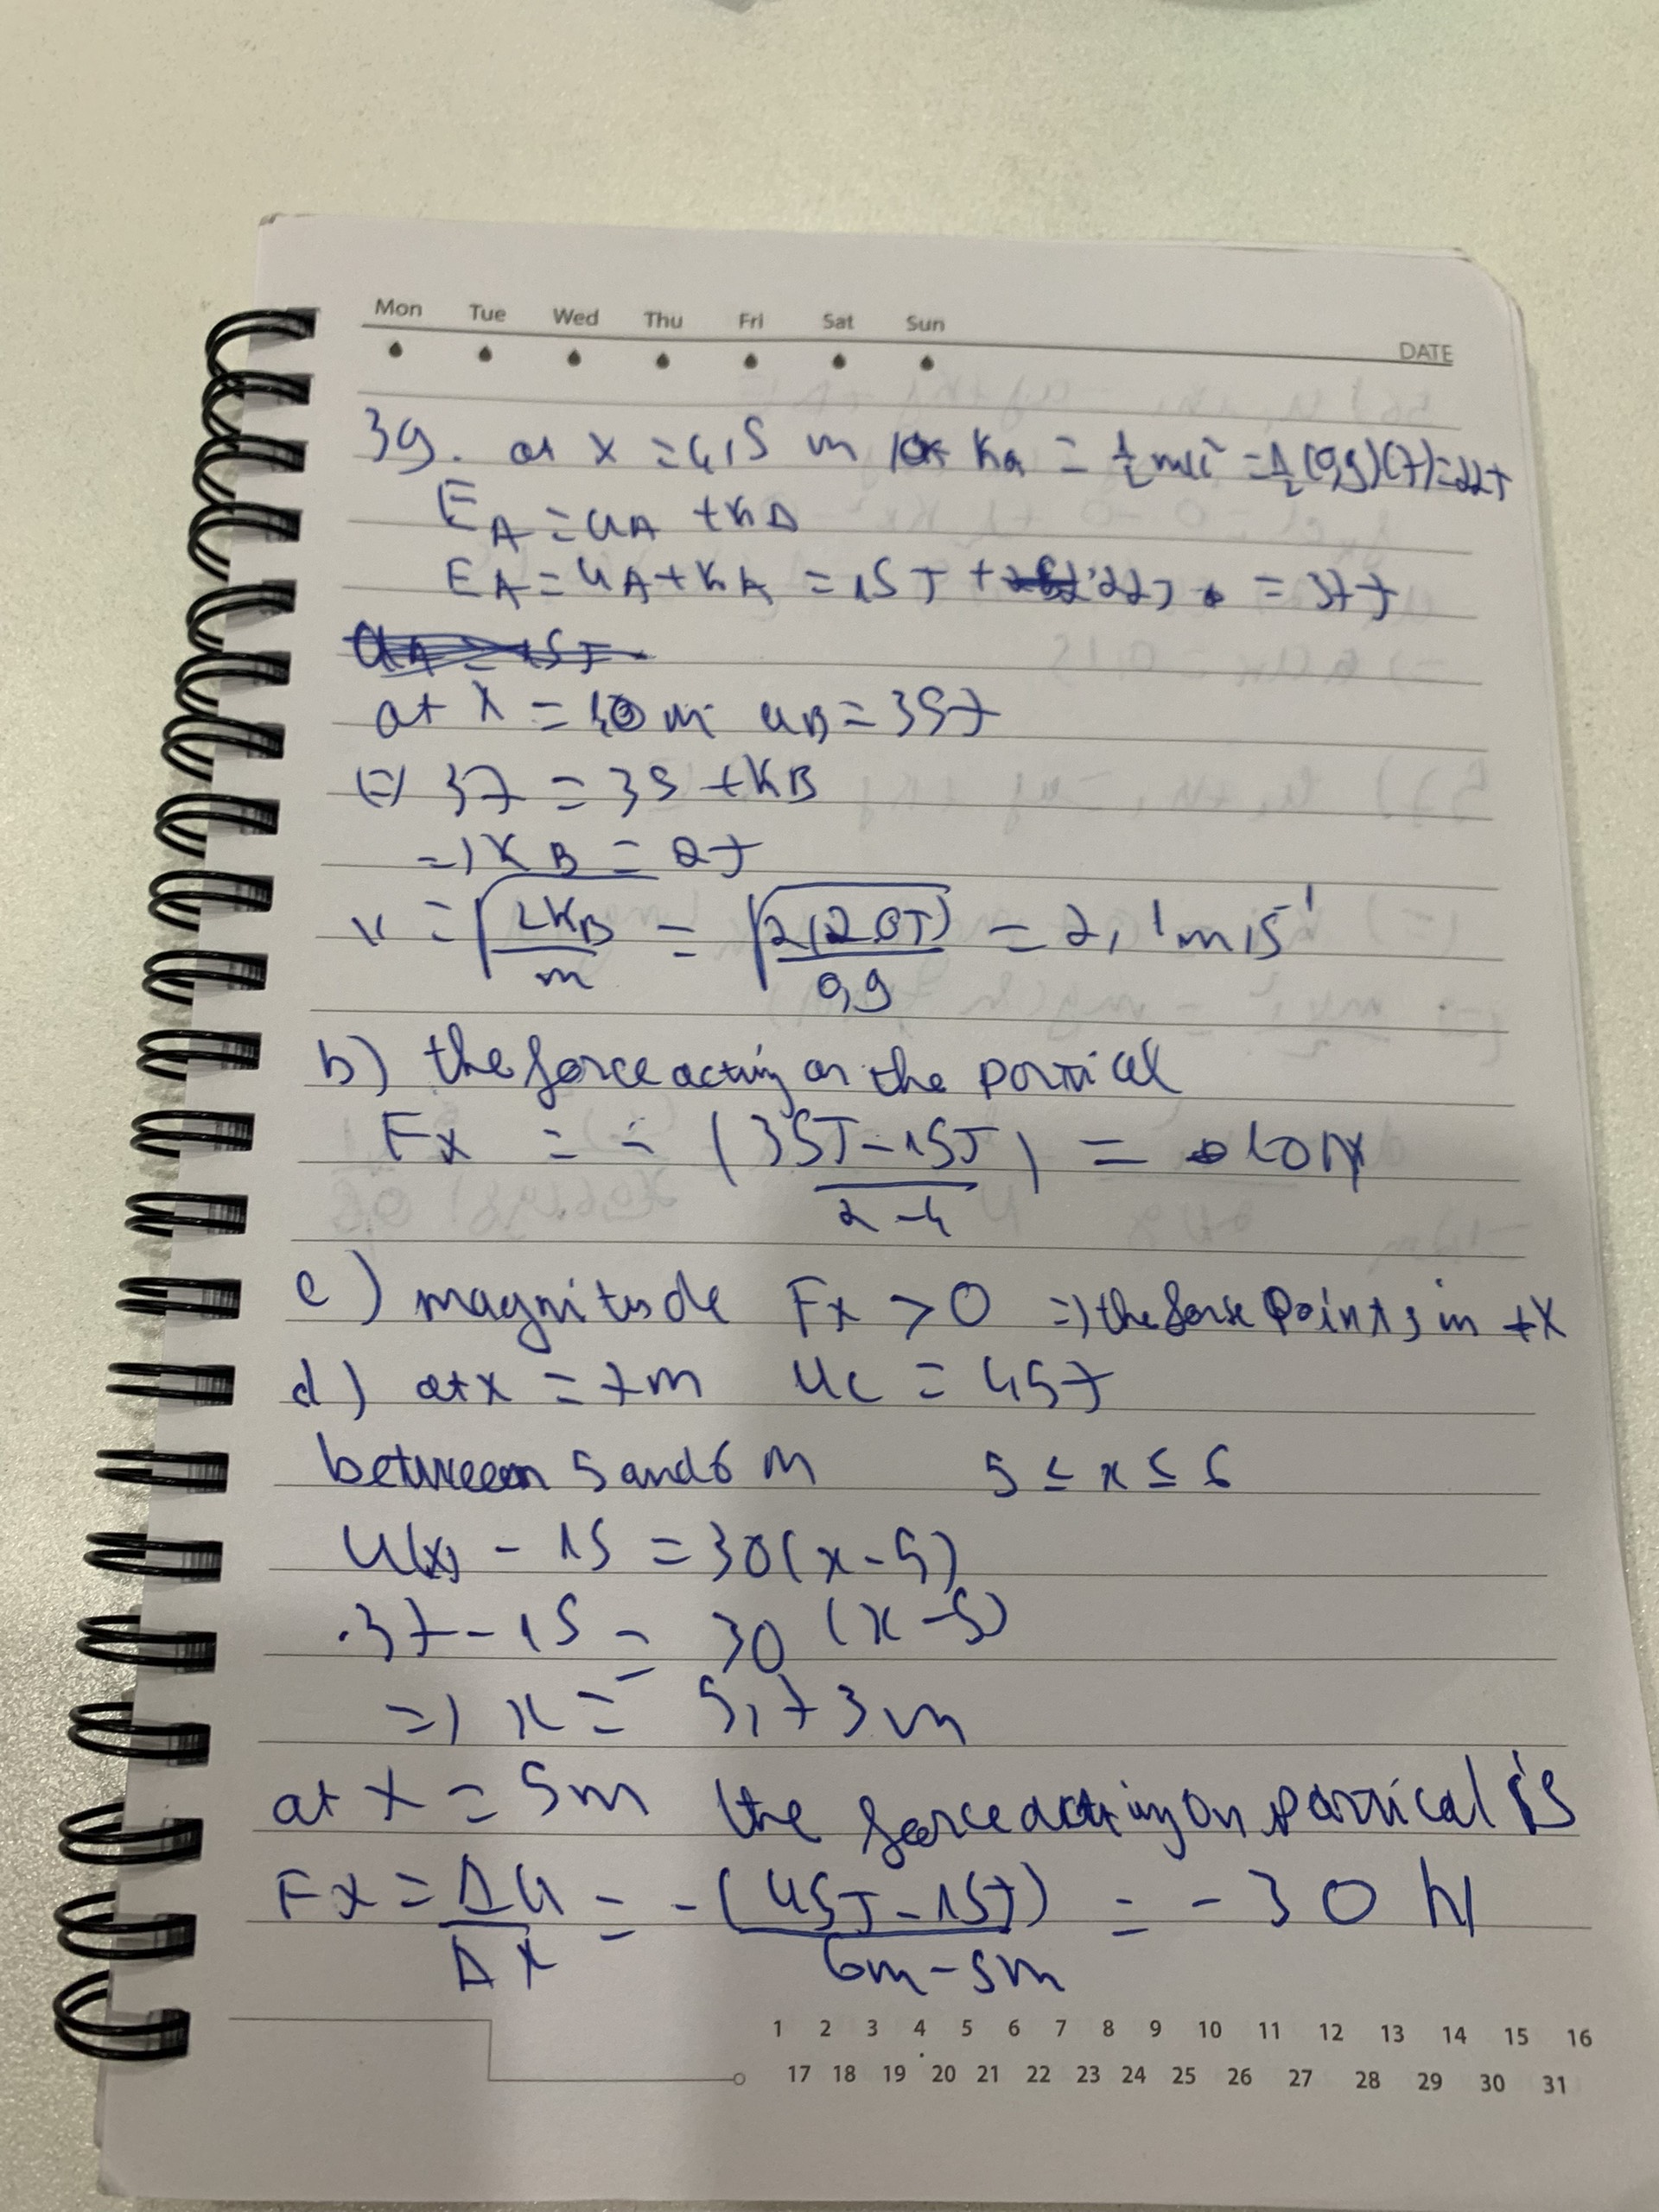 Mon Tue Wed Thu Fri Sat Sun
DATE
39. at x = 4,5 m KA = 1/2 mv² = 1/2 (0,9)(7) = 22J
EA = UA + KA
EA = UA + KA = 15J + 22J = 37J
at x = 10 m UB = 35J
(=) 37 = 35 + KB
=) KB = 2J
v = √(2KB/m) = √(2(2.0J)/0,9) = 2,1 m/s⁻¹
b) the force acting on the partical
Fx = - (35J - 15J)/(2 - 4) = 10N
c) magnitude Fx > 0 =) the forse points in +x
d) at x = 7m UC = 45J
between 5 and 6 m 5 ≤ x ≤ 6
U(x) - 15 = 30(x - 5)
37 - 15 = 30 (x - 5)
=) x = 5,73m
at x = 5m the force acting on partical is
Fx = ΔU/Δx = -(45J - 15J)/(6m - 5m) = -30 N
1 2 3 4 5 6 7 8 9 10 11 12 13 14 15 16
17 18 19 20 21 22 23 24 25 26 27 28 29 30 31